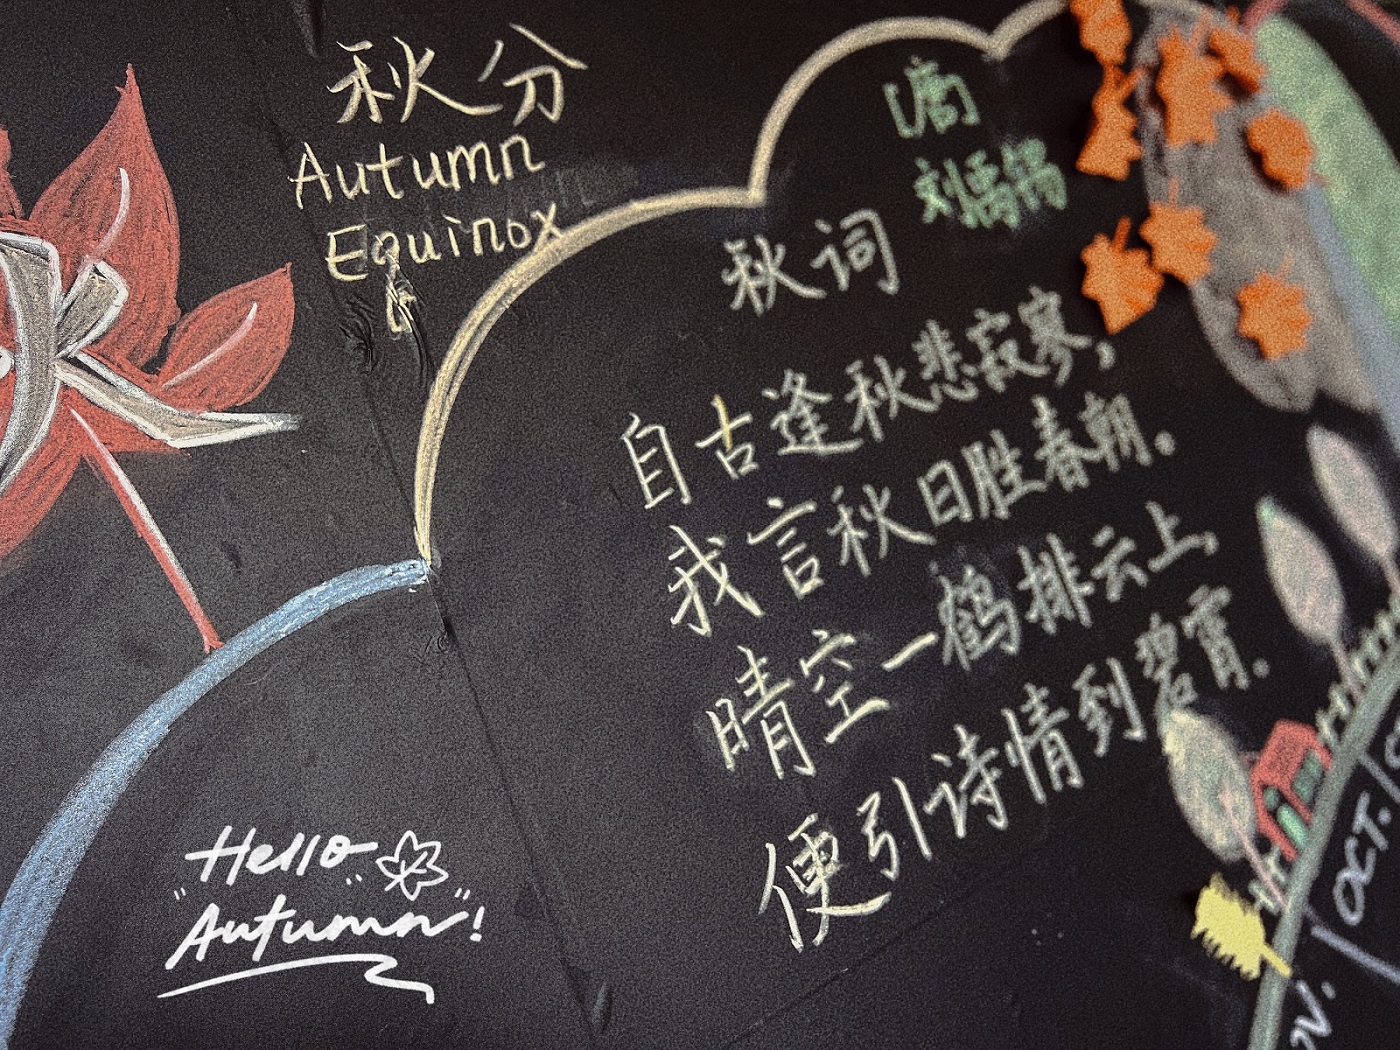 秋分
Autumn
Equinox
[唐]
刘禹锡
秋词
自古逢秋悲寂寥,
我言秋日胜春朝。
晴空一鹤排云上,
便引诗情到碧霄。
Hello
"Autumn"!
OCT.